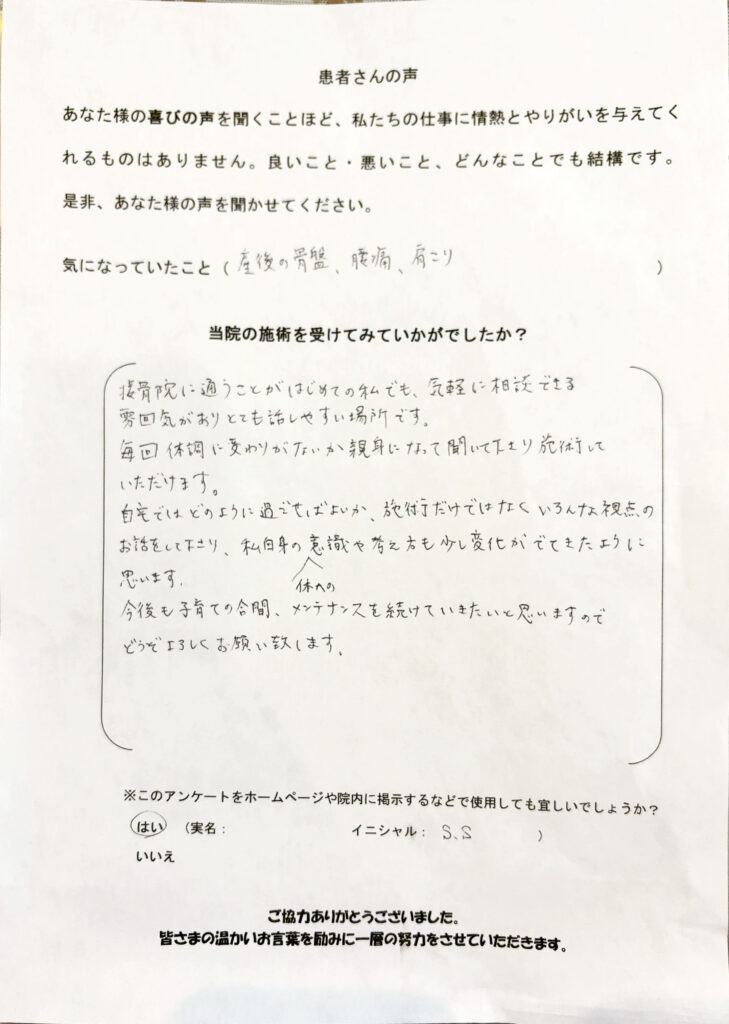 患者さんの声
あなた様の喜びの声を聞くことほど、私たちの仕事に情熱とやりがいを与えてく
れるものはありません。良いこと・悪いこと、どんなことでも結構です。
是非、あなた様の声を聞かせてください。
気になっていたこと（ 産後の骨盤、腰痛、肩こり ）
当院の施術を受けてみていかがでしたか？
接骨院に通うことがはじめての私でも、気軽に相談できる
雰囲気がありとても話しやすい場所です。
毎回体調に変わりがないか親身になって聞いて下さり施術して
いただけます。
自宅ではどのように過ごせばよいか、施術だけではなくいろんな視点の
お話をして下さり、私自身の意識や考え方も少し変化がでてきたように
体への
思います.
今後も子育ての合間、メンテナンスを続けていきたいと思いますので
どうぞよろしくお願い致します.
※このアンケートをホームページや院内に掲示するなどで使用しても宜しいでしょうか？
はい （実名： イニシャル： S.S ）
いいえ
ご協力ありがとうございました。
皆さまの温かいお言葉を励みに一層の努力をさせていただきます。